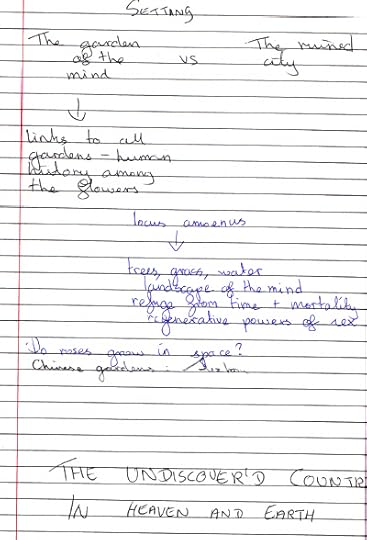 SETTING
The garden of the mind vs The ruined city
links to all
gardens – human
history among
the flowers
locus amoenus
trees, grass, water
landscape of the mind
refuge from time + mortality
regenerative powers of sex
Do roses grow in space?
Chinese gardens :
THE UNDISCOVER'D COUNTR
IN HEAVEN AND EARTH